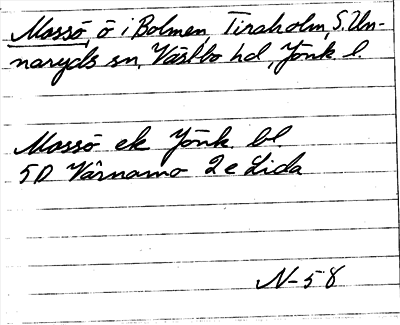 Mossö, ö i Bolmen, Tiraholm, S. Un-
naryds sn, Västbo hd, Jönk l.
Mossö ek Jönk bl.
5D Värnamo 2e Lida
N-58